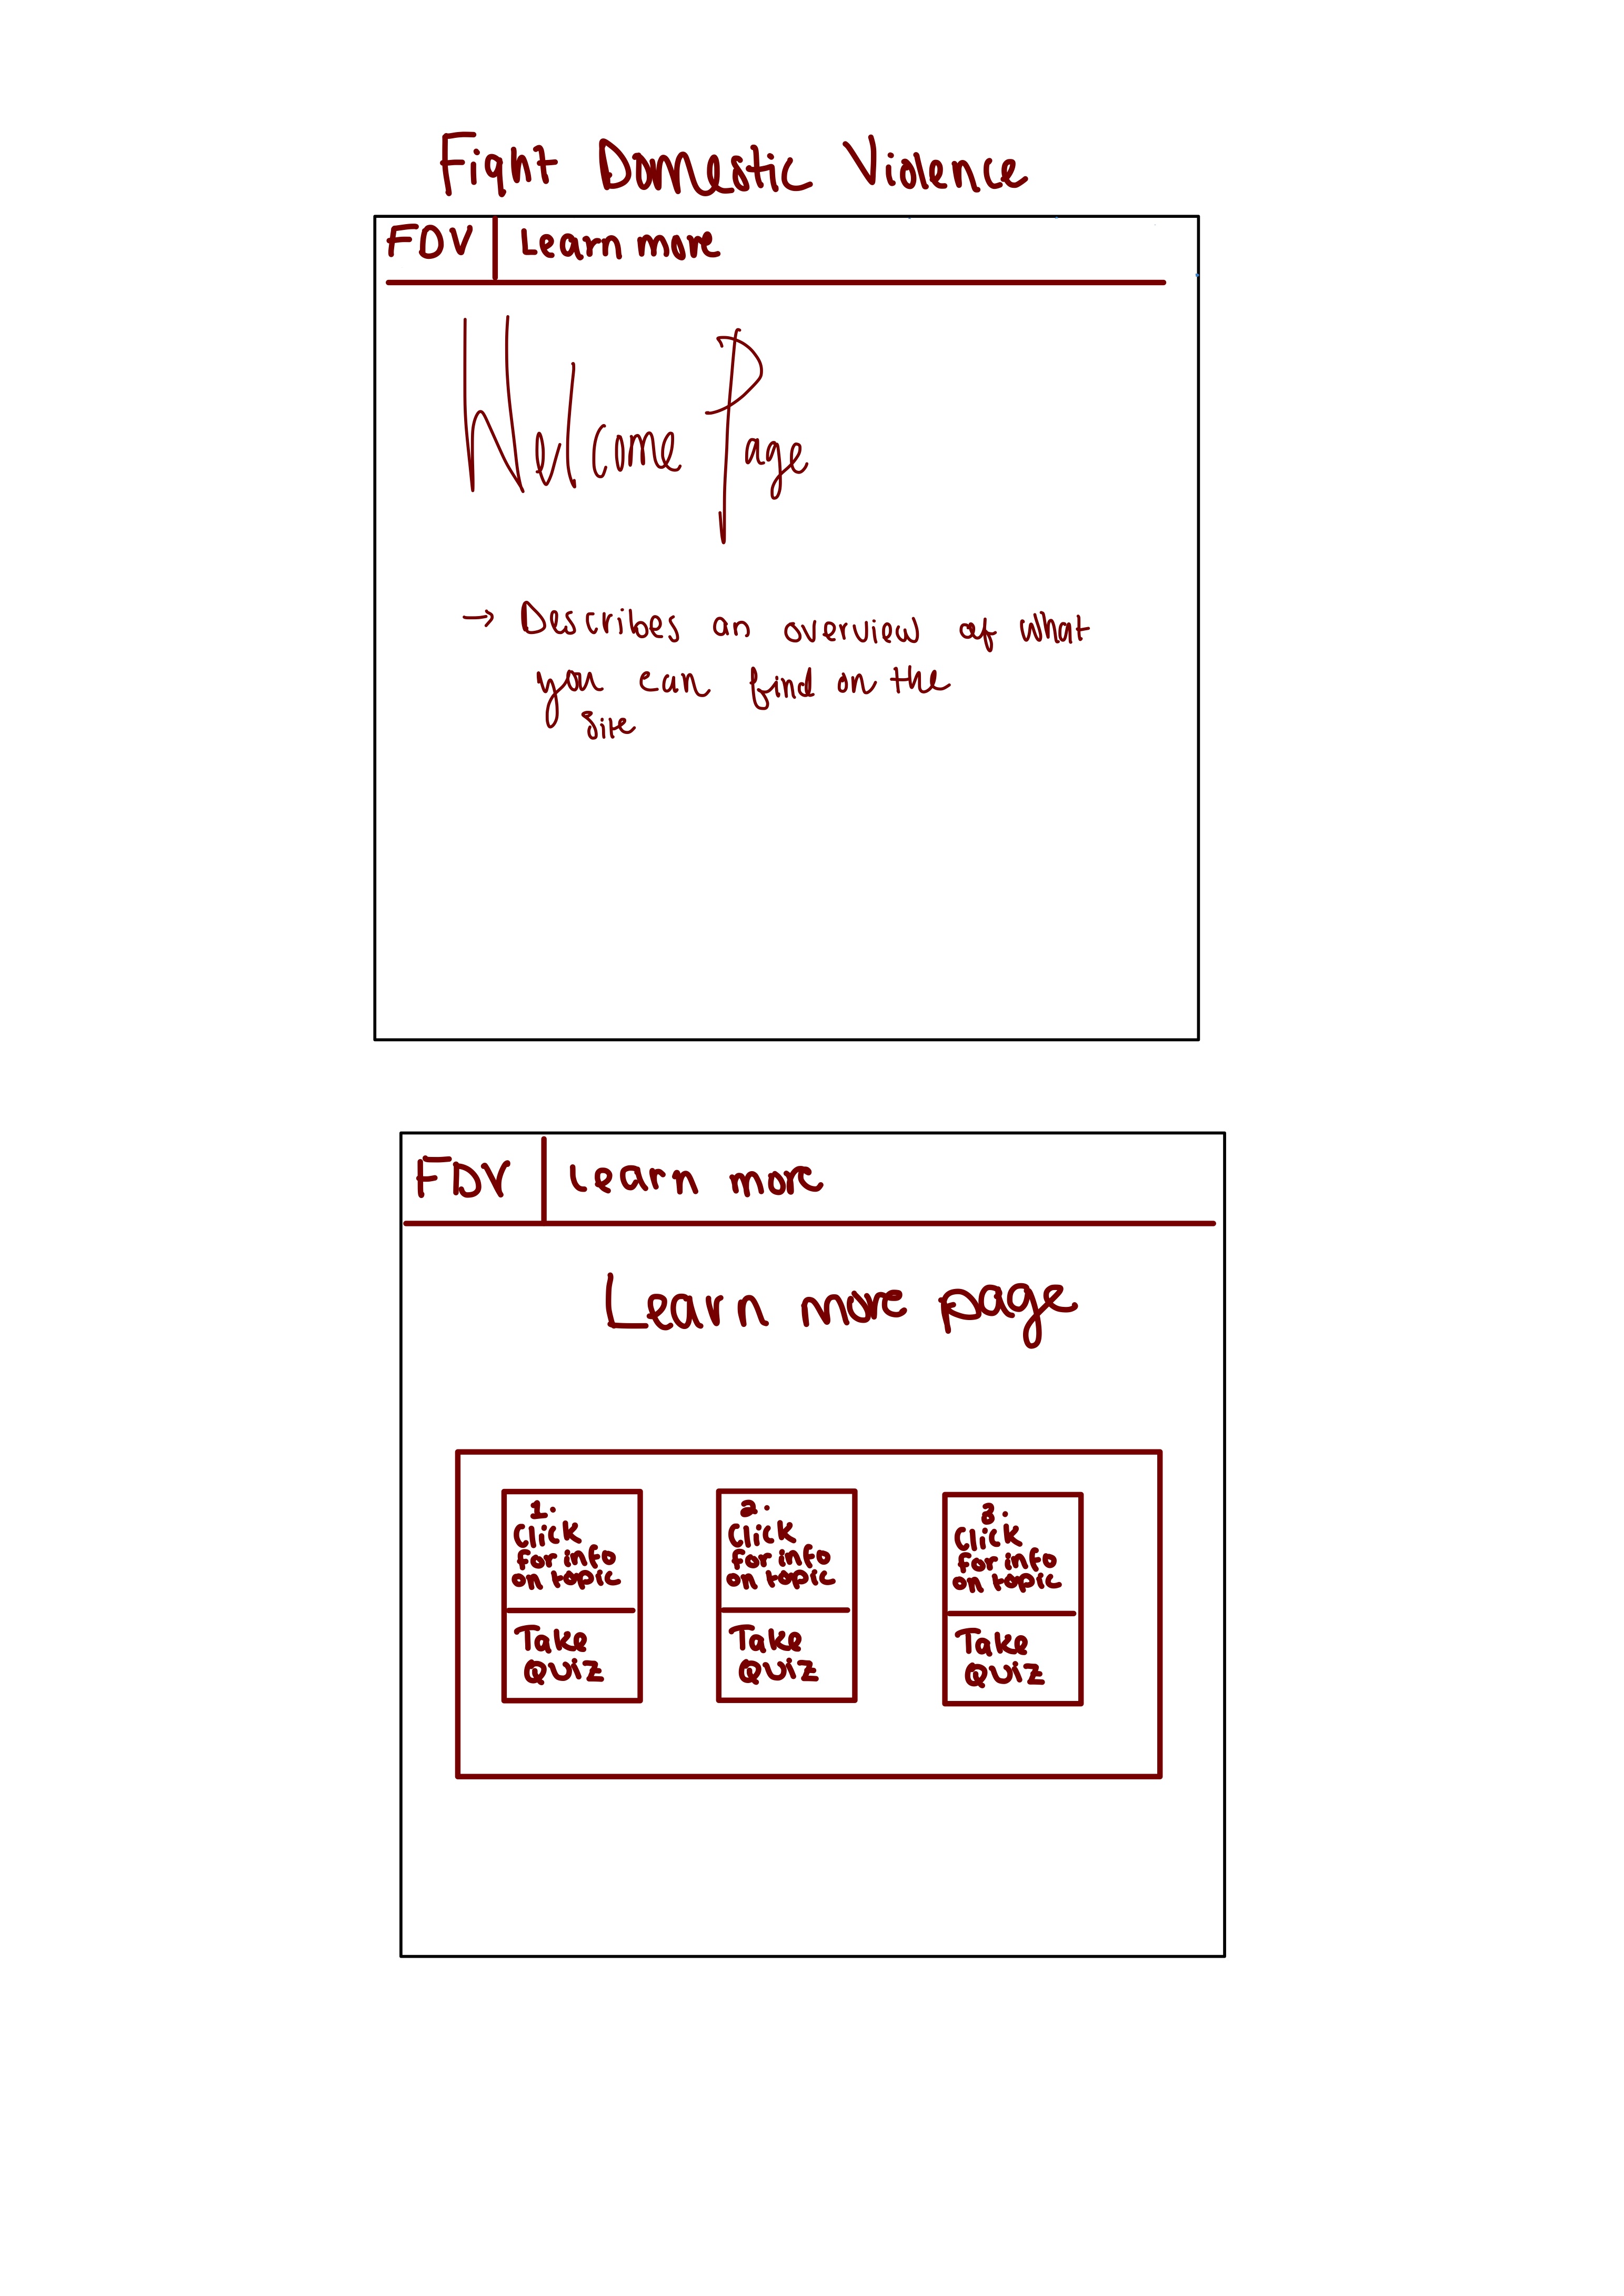 Fight Domestic Violence
FDV Learn more
Welcome Page
→ Describes an overview of what
you can find on the
site
FDV Learn more
Learn more page
1.
Click
for info
on topic
Take
Quiz
2.
Click
for info
on topic
Take
Quiz
3.
Click
for info
on topic
Take
Quiz